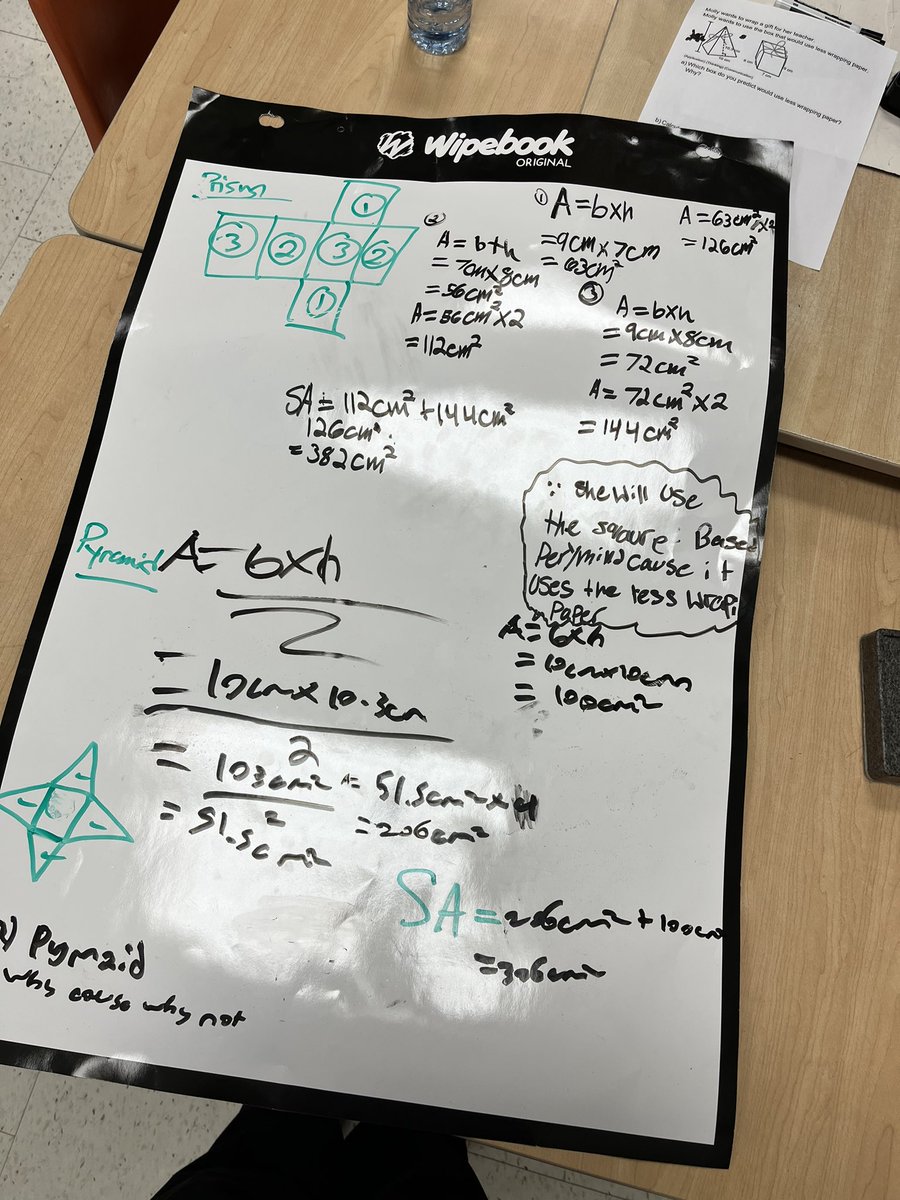 Molly wants to wrap a gift for her teacher.
Molly wants to use the box that would use less wrapping paper.
10 cm
7 cm
a) Which box do you predict would use less wrapping paper?
Why?
Wipebook
ORIGINAL
Prism
1
3 2 3 2
1
① A=bxh
=9cm x 7cm
= 63cm²
A=63cm²x2
=126cm²
②
A= b+h
= 7cm x 8cm
= 56cm²
A= 56cm² x 2
=112cm²
③
A=bxh
= 9cm x 8cm
= 72cm²
A= 72cm² x 2
= 144cm²
SA= 112cm² + 144cm²
126cm²
= 382cm²
∵ she will use
the square-Based
Perymind cause it
uses the less wrap
Paper
Pyramid
A= bxh
2
= 10cm x 10.3cm
2
= 103cm²
2
= 51.5cm²
A= 51.5cm² x 4
=206cm²
A=bxh
= 10cm x 10cm
= 100cm²
SA =206cm² + 100cm
=306cm²
) Pymaid
why cause why not